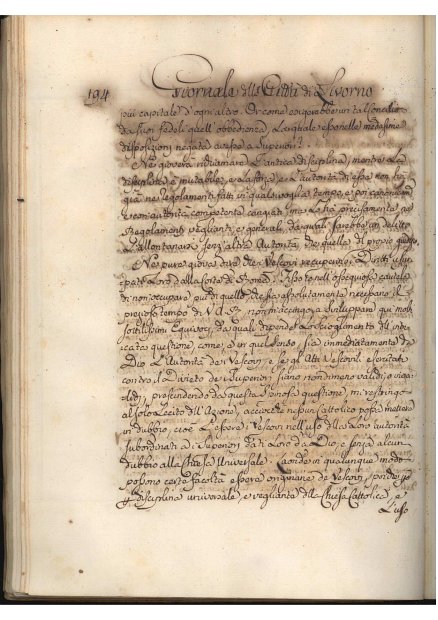 194 Giornale delli Critici di Livorno
più capitale d'ogni altro. Or come esigerebbe un tal Concilio
da suoi fedeli quell'obbedienza, la quale esso nelle medesime
disposizioni negata avesse a Superiori?
Nè gioverà richiamare l'antica disciplina, mentre la
disciplina è mutabile, e la forza, e l'autorità di essa non ha
già ne' regolamenti fatti in qualsivoglia tempo, e poi
autorità competente cangiati, ma l'ha precisamente ne'
Regolamenti veglianti, e generali, da' quali sarebbe un delitto
l'allontanarsi senz'altra autorità, che quella di proprio
Nè pure giova dire, che i Vescovi recuperino i Diritti
loro dalla Corte di Roma. Fisso nell'ossequiosa cautela
di non occupare più di quello, che sia assolutamente necessario il
prezioso tempo di V.A.R., non mi accingo a sviluppare qui molti
sottilissimi Equivoci, da' quali dipende lo scioglimento dell'
questione, come, e in qual senso, sia immediatamente da
Dio l'Autorità dei Vescovi, e se gli Atti Vescovili esercitati
contro il Divieto de' Superiori siano non dimeno validi, o
, prescindendo da questa spinosa questione, mi restringo
al solo Lecito dell'Azione, acciocchè nessun Cattolico possa mettere
in dubbio, cioè l'essere i Vescovi nell'uso della loro autorità
subordinati a i Superiori dati loro da Dio, e senza alcun
dubbio alla Chiesa Universale. Laonde in qualunque modo
possono certe facoltà essere originarie de' Vescovi, poichè
disciplina universale, e vegliante della Chiesa Cattolica, e
l'uso